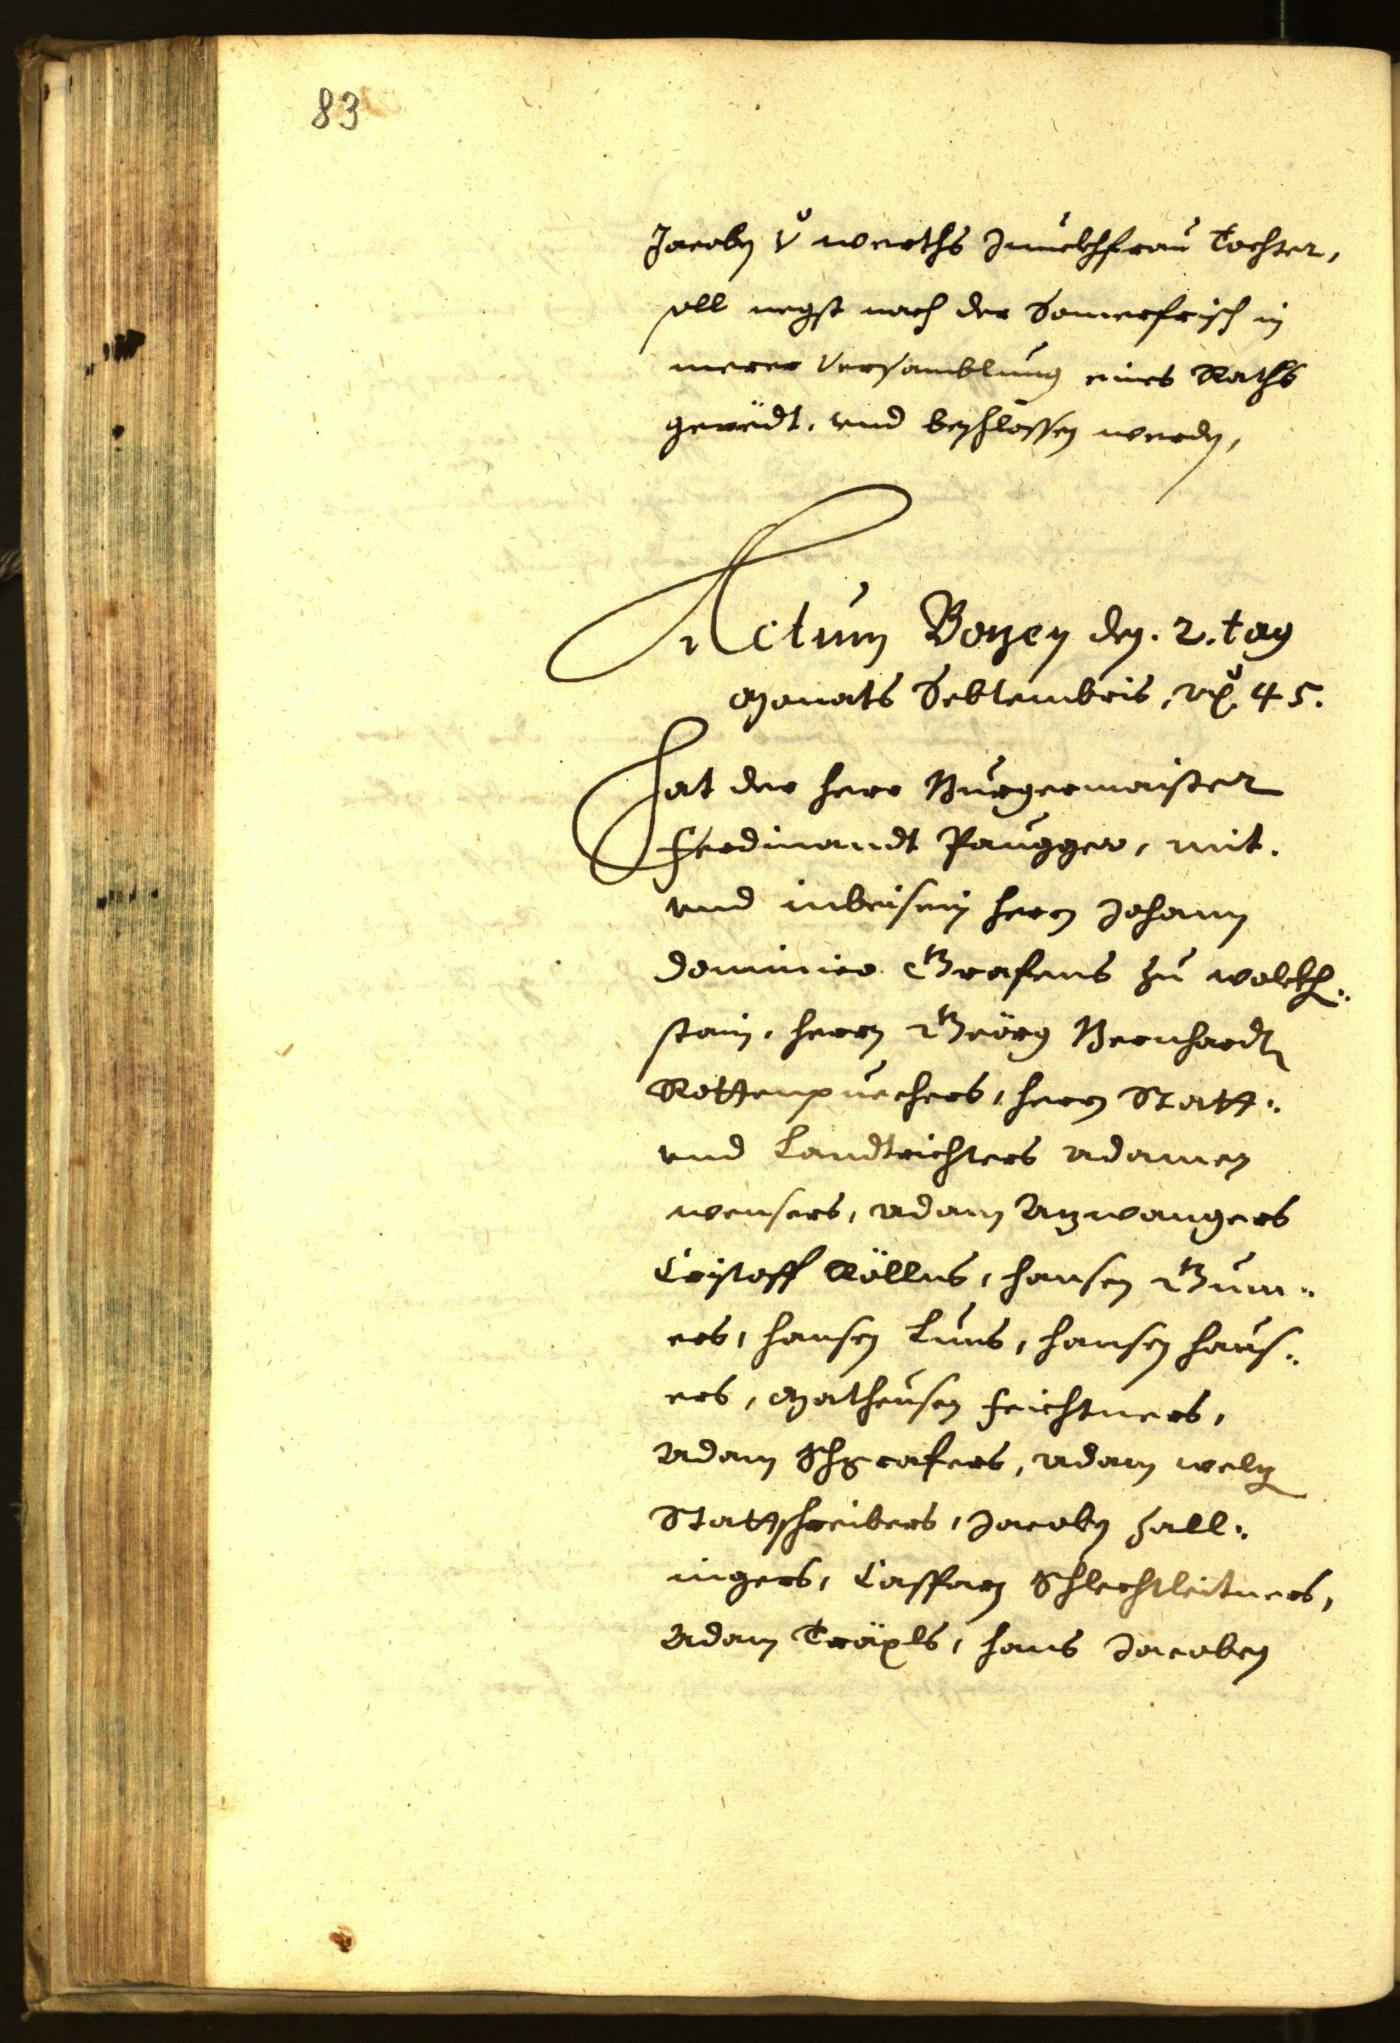 83
Jacoben v werths Junckhfrau Tochter,
soll negst nach der Somerfrisch in
merer versamblung eines Raths
geredt, vnd beschlossen werden,
Actum Botzen den. 2. tag
Monats Sebtembris, 45.
Hat der herr Burgermaister
Ferdinandt Paugger, mit.
vnd inbeisein herrn Johann
Dominico Grafens zu wolckhen:
stain, herrn Geörg Bernhardt
Rottenpuechers, herrn Statt:
vnd Landtrichters Adamen
wensers, Adam Atzwangers
Cristoff Röllns, hansen Gum:
ers, hansen Luns, hansen haus:
ers, Matheusen Feichtners,
Adam Schgrafers, Adam weltz
Stattschreibers, Jacoben Zall:
ingers, Casparn Schlechtleitners,
Adam Träxls, hans Jacoben